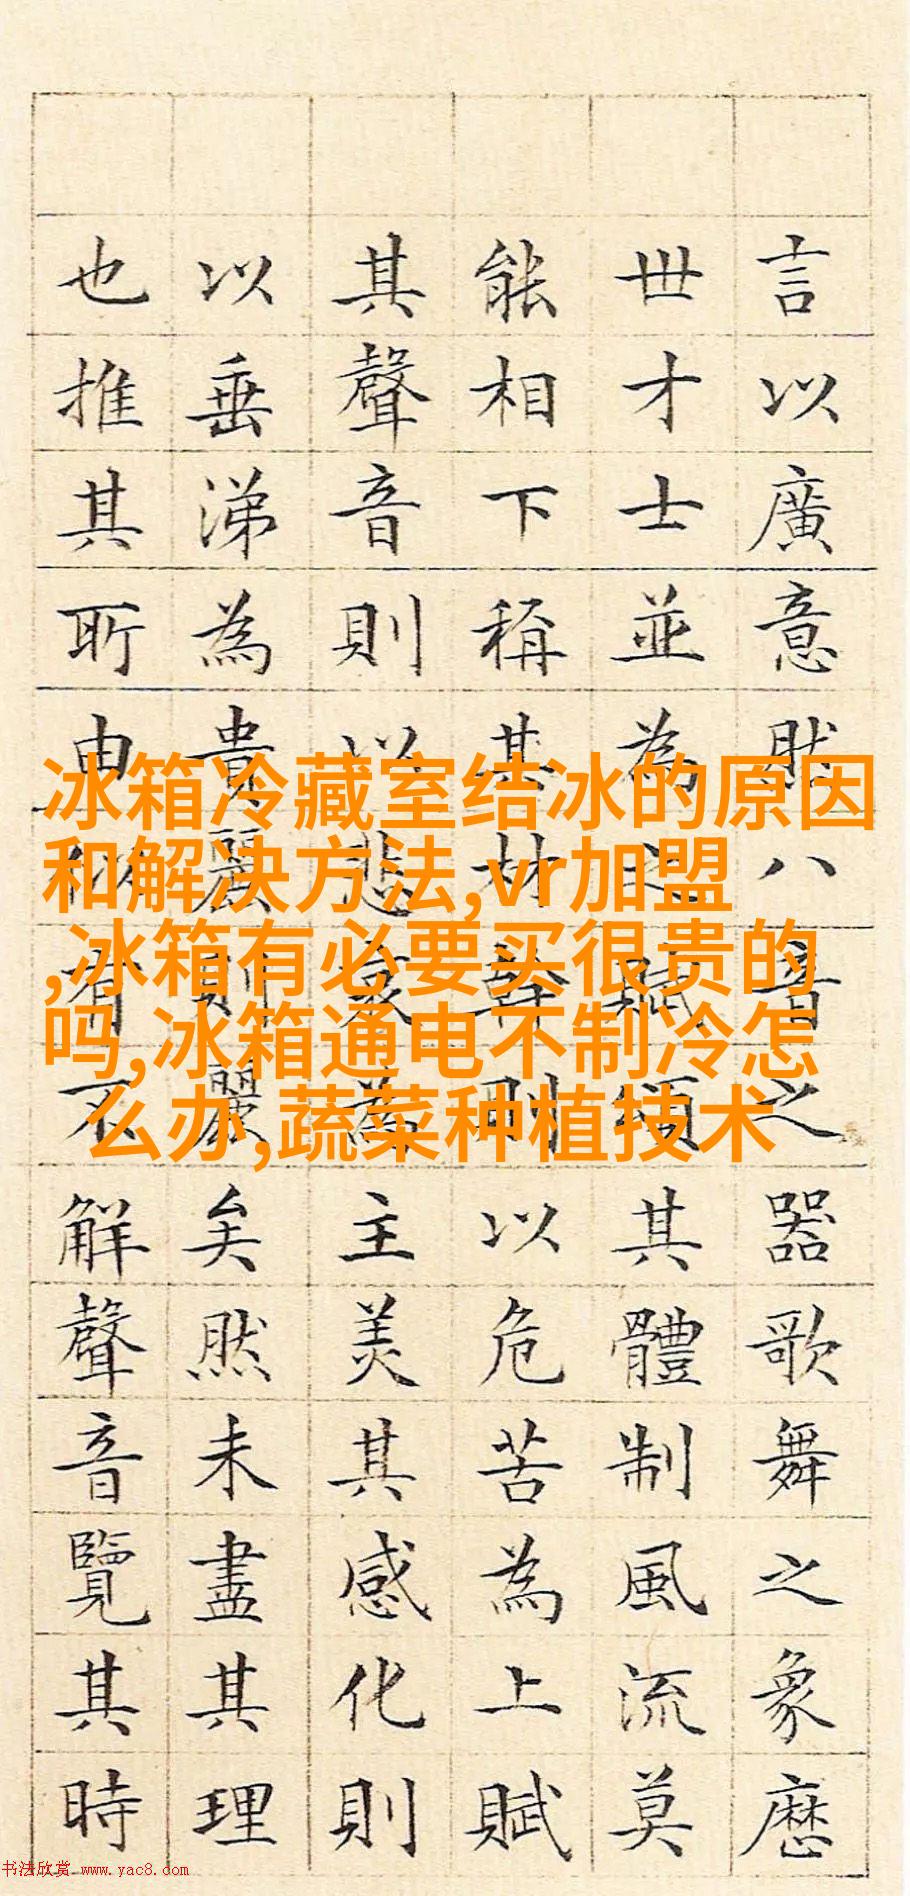 言以廣意然八音之器歌舞之象歷
世才士並為之賦頌其體制風流莫
能相下稱其材幹則以危苦為上賦
其聲音則以悲哀為主美其感化則
以垂涕為貴麗則麗矣然未盡其理
也推其所由似者不解聲音覽其時
冰箱冷藏室结冰的原因
和解决方法,vr加盟
,冰箱有必要买很贵的
吗,冰箱通电不制冷怎
么办,蔬菜种植技术
书法欣赏 www.yac8.com